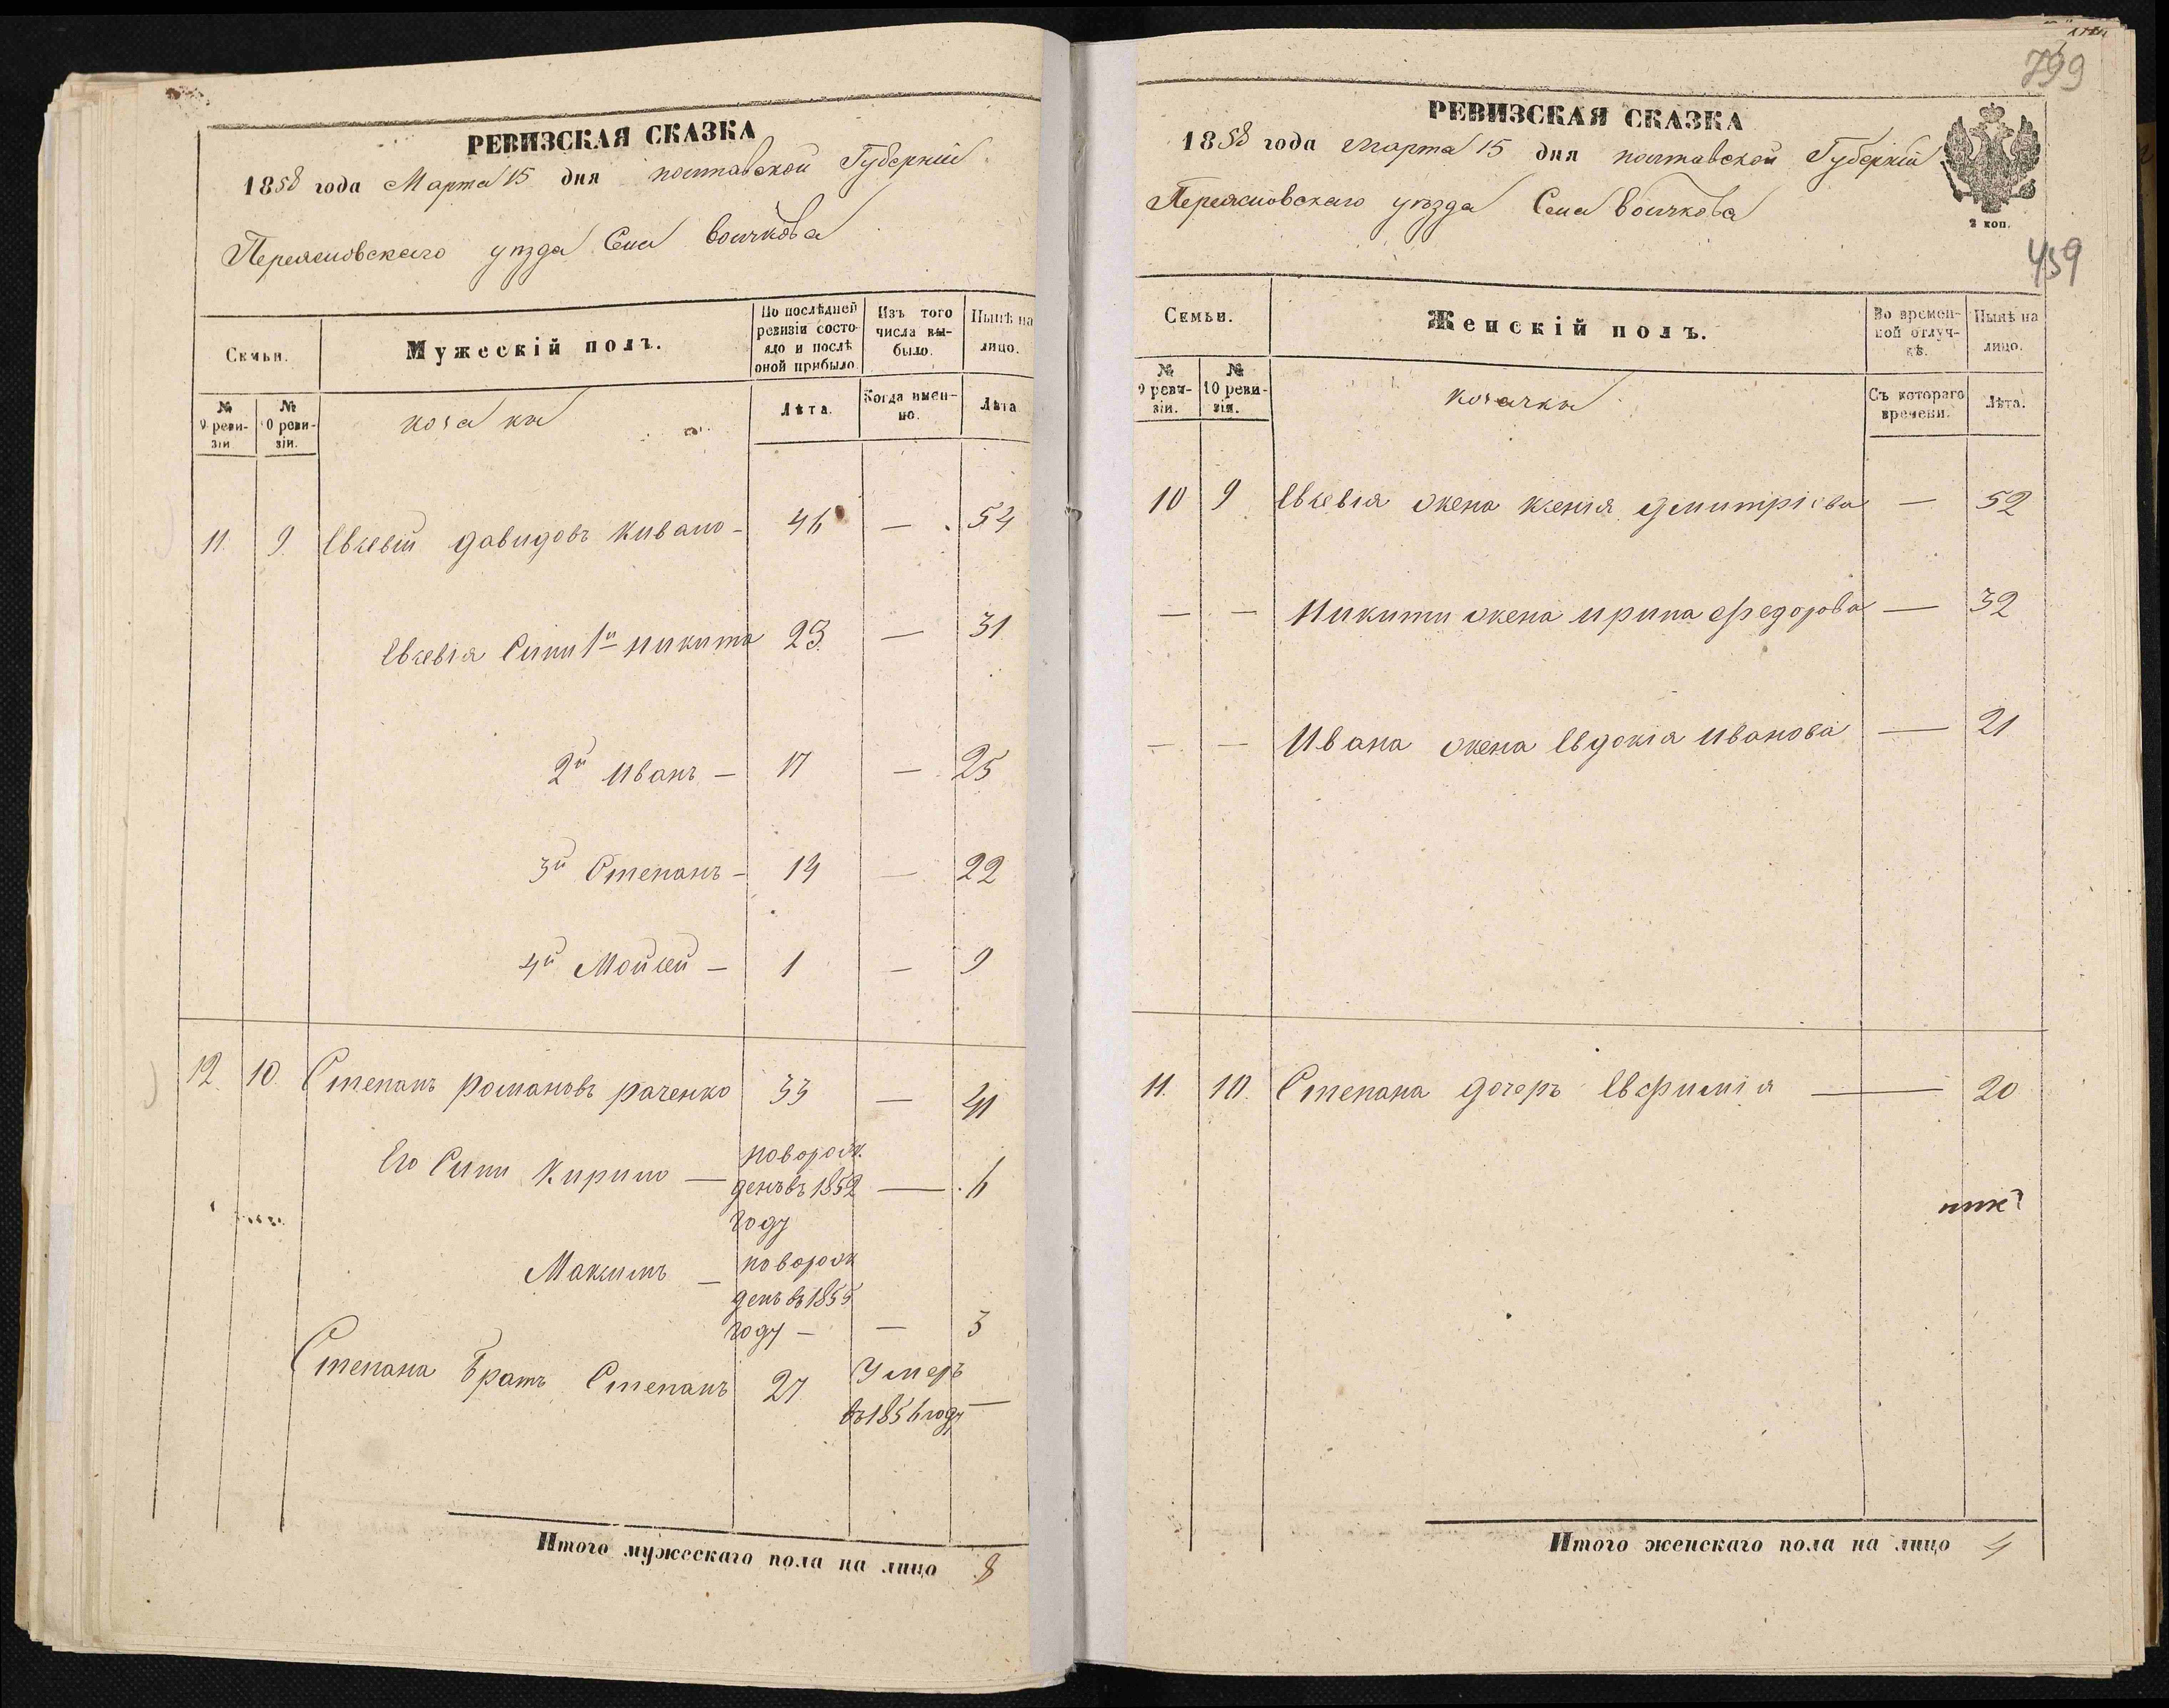 РЕВИЗСКАЯ СКАЗКА
1858 года Марта 15 дня полтавской Губерніи
Переясловскаго уезда Села Войчкова
Семьи.
Мужескій полъ.
По послѣдней ревизіи состояло и послѣ оной прибыло.
Изъ того числа выбыло.
Нынѣ на лицо.
№ 9 ревизіи.
№ 10 ревизіи.
козаки
Лѣта.
Когда именно.
Лѣта
11. 9. Евсевій давидовъ Кивало - 46 — 54
Евсевія Сини 1й никита 23. — 31
2й иванъ — 17 — 25
3й Степанъ - 14 — 22
4й Мойсей — 1 — 9
12. 10. Степанъ романовъ раченко 33 — 41
Его Сини Кирило — новорож
денъ въ 1852 — 6
году
Максимъ — новорож
денъ въ 1855
году — — 3
Степана Братъ Степанъ 27 Умеръ
въ 1856 году —
Итого мужескаго пола на лицо 8
799
РЕВИЗСКАЯ СКАЗКА
1858 года марта 15 дня полтавской Губерніи
Переясловскаго уѣзда Села Войчкова
2 коп.
459
Семьи.
Женскій полъ.
Во временной отлучкѣ.
Нынѣ на лицо.
№ 9 ревизіи.
№ 10 ревизія.
козачки
Съ котораго времени.
Лѣта.
10 9 Евсевія жена ксенія дмитріева — 52
— — Никити жена ирина федорова — 32
— — Ивана жена Евдокія иванова — 21
11. 10. Степана дочеръ Евфимія — 20
Итого женскаго пола на лицо 4